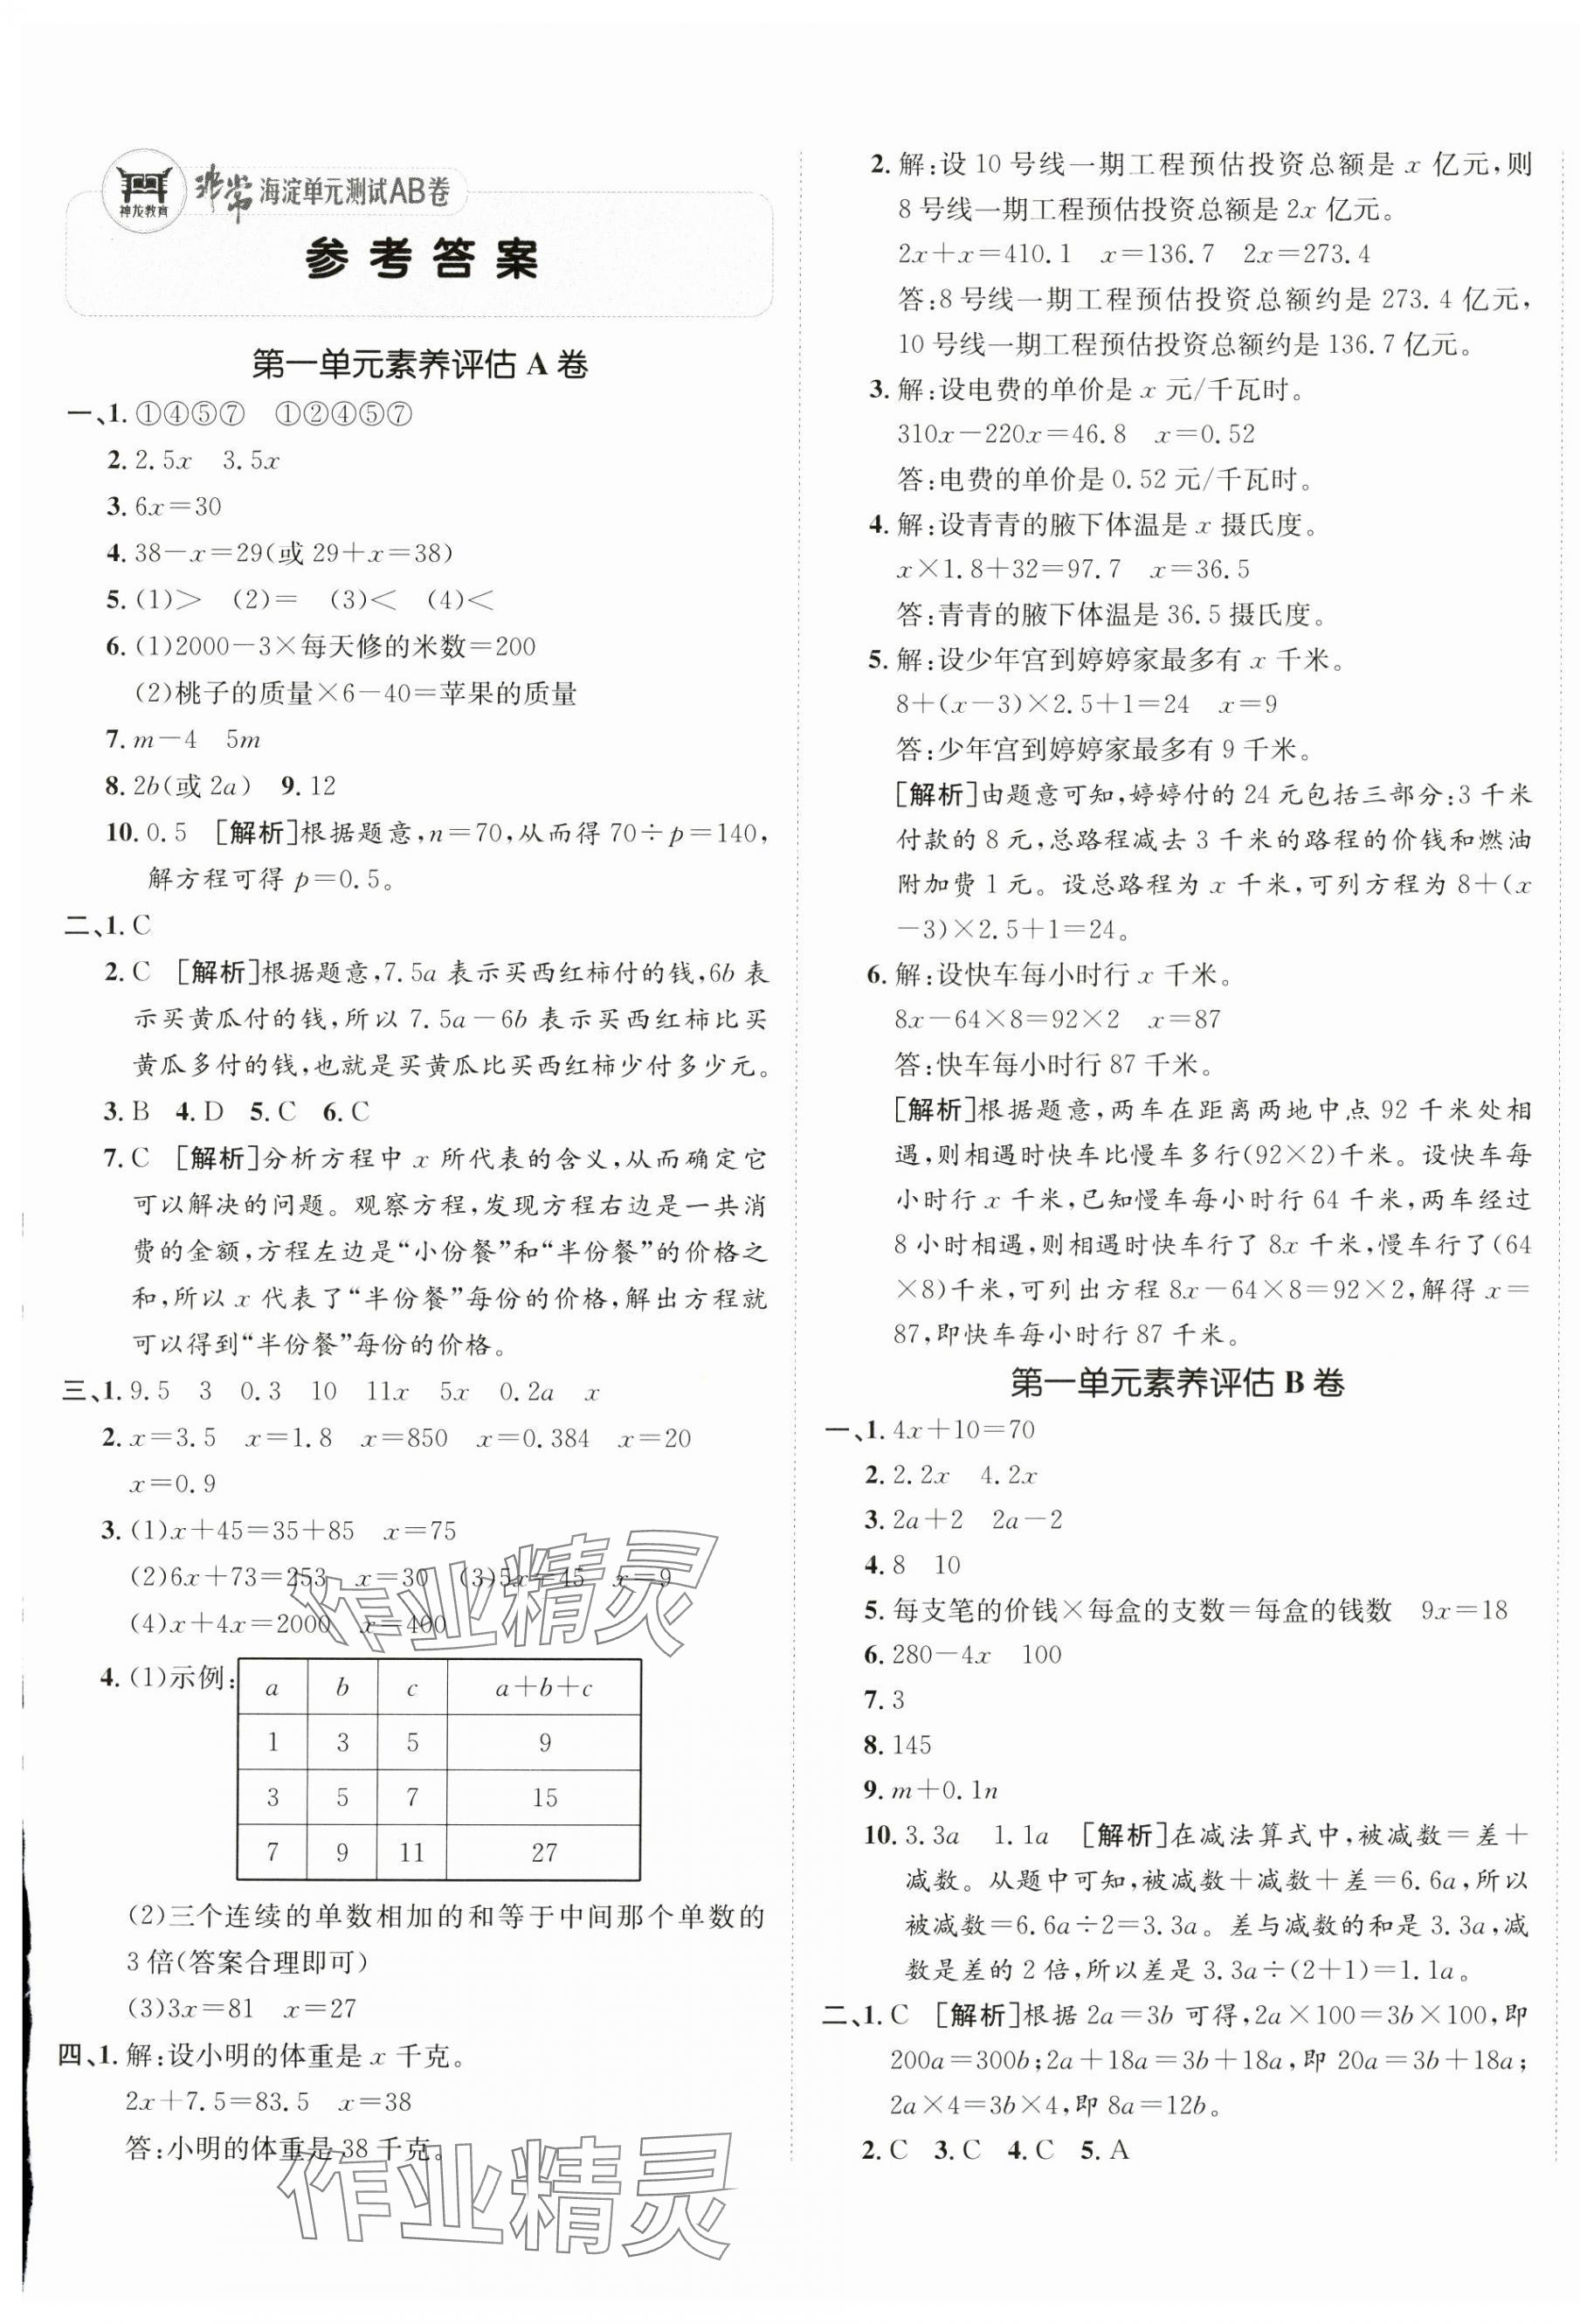 神龙教育
非常 海淀单元测试AB卷
参考答案
第一单元素养评估 A 卷
一、1. ①④⑤⑦ ①②④⑤⑦
2. 2.5x 3.5x
3. 6x=30
4. 38-x=29(或 29+x=38)
5. (1)> (2)= (3)< (4)<
6. (1)2000-3×每天修的米数=200
(2)桃子的质量×6-40=苹果的质量
7. m-4 5m
8. 2b(或 2a) 9. 12
10. 0.5 [解析]根据题意,n=70,从而得 70÷p=140,
解方程可得 p=0.5。
二、1. C
2. C [解析]根据题意,7.5a 表示买西红柿付的钱,6b 表
示买黄瓜付的钱,所以 7.5a-6b 表示买西红柿比买
黄瓜多付的钱,也就是买黄瓜比买西红柿少付多少元。
3. B 4. D 5. C 6. C
7. C [解析]分析方程中 x 所代表的含义,从而确定它
可以解决的问题。观察方程,发现方程右边是一共消
费的金额,方程左边是“小份餐”和“半份餐”的价格之
和,所以 x 代表了“半份餐”每份的价格,解出方程就
可以得到“半份餐”每份的价格。
三、1. 9.5 3 0.3 10 11x 5x 0.2a x
2. x=3.5 x=1.8 x=850 x=0.384 x=20
x=0.9
3. (1)x+45=35+85 x=75
(2)6x+73=253 x=30 (3)5x=45 x=9
(4)x+4x=2000 x=400
4. (1)示例:
a b c a+b+c
1 3 5 9
3 5 7 15
7 9 11 27
(2)三个连续的单数相加的和等于中间那个单数的
3 倍(答案合理即可)
(3)3x=81 x=27
四、1. 解:设小明的体重是 x 千克。
2x+7.5=83.5 x=38
答:小明的体重是 38 千克。
2. 解:设 10 号线一期工程预估投资总额是 x 亿元,则
8 号线一期工程预估投资总额是 2x 亿元。
2x+x=410.1 x=136.7 2x=273.4
答:8 号线一期工程预估投资总额约是 273.4 亿元,
10 号线一期工程预估投资总额约是 136.7 亿元。
3. 解:设电费的单价是 x 元/千瓦时。
310x-220x=46.8 x=0.52
答:电费的单价是 0.52 元/千瓦时。
4. 解:设青青的腋下体温是 x 摄氏度。
x×1.8+32=97.7 x=36.5
答:青青的腋下体温是 36.5 摄氏度。
5. 解:设少年宫到婷婷家最多有 x 千米。
8+(x-3)×2.5+1=24 x=9
答:少年宫到婷婷家最多有 9 千米。
[解析]由题意可知,婷婷付的 24 元包括三部分:3 千米
付款的 8 元,总路程减去 3 千米的路程的价钱和燃油
附加费 1 元。设总路程为 x 千米,可列方程为 8+(x
-3)×2.5+1=24。
6. 解:设快车每小时行 x 千米。
8x-64×8=92×2 x=87
答:快车每小时行 87 千米。
[解析]根据题意,两车在距离两地中点 92 千米处相
遇,则相遇时快车比慢车多行(92×2)千米。设快车每
小时行 x 千米,已知慢车每小时行 64 千米,两车经过
8 小时相遇,则相遇时快车行了 8x 千米,慢车行了(64
×8)千米,可列出方程 8x-64×8=92×2,解得 x=
87,即快车每小时行 87 千米。
第一单元素养评估 B 卷
一、1. 4x+10=70
2. 2.2x 4.2x
3. 2a+2 2a-2
4. 8 10
5. 每支笔的价钱×每盒的支数=每盒的钱数 9x=18
6. 280-4x 100
7. 3
8. 145
9. m+0.1n
10. 3.3a 1.1a [解析]在减法算式中,被减数=差+
减数。从题中可知,被减数+减数+差=6.6a,所以
被减数=6.6a÷2=3.3a。差与减数的和是 3.3a,减
数是差的 2 倍,所以差是 3.3a÷(2+1)=1.1a。
二、1. C [解析]根据 2a=3b 可得,2a×100=3b×100,即
200a=300b;2a+18a=3b+18a,即 20a=3b+18a;
2a×4=3b×4,即 8a=12b。
2. C 3. C 4. C 5. A
作业精灵
作业精灵